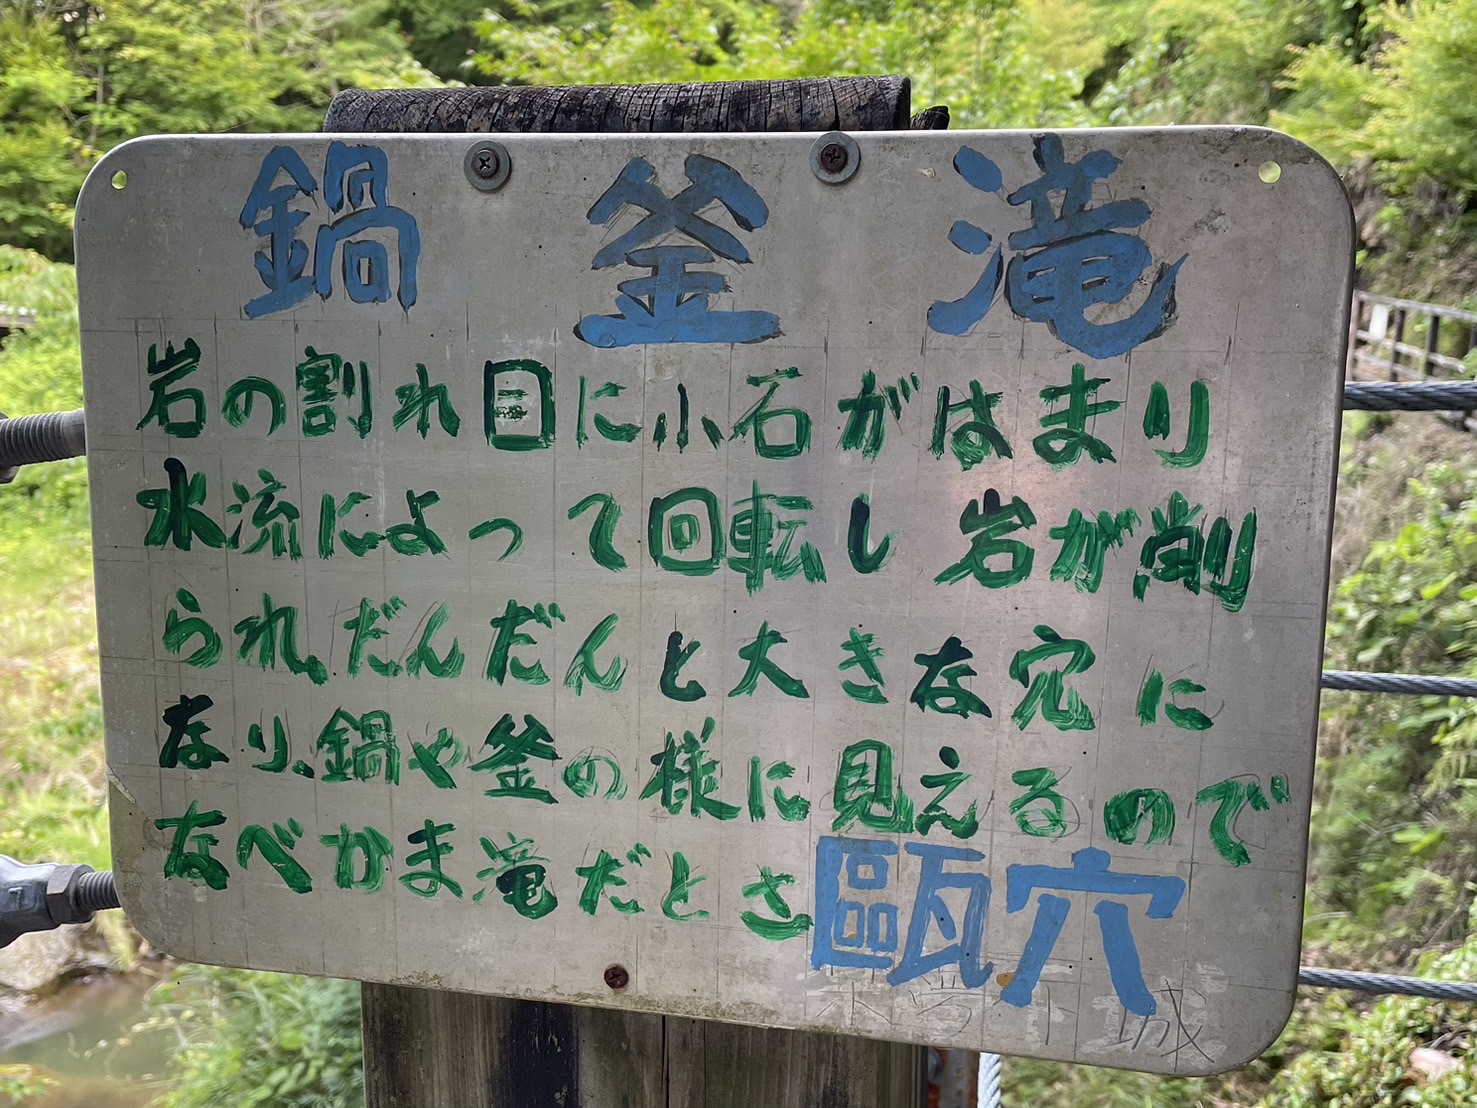 鍋釜滝
岩の割れ目に小石がはまり
水流によって回転し岩が削
られ、だんだんと大きな穴に
なり、鍋や釜の様に見えるので
なべかま滝だとさ
甌穴